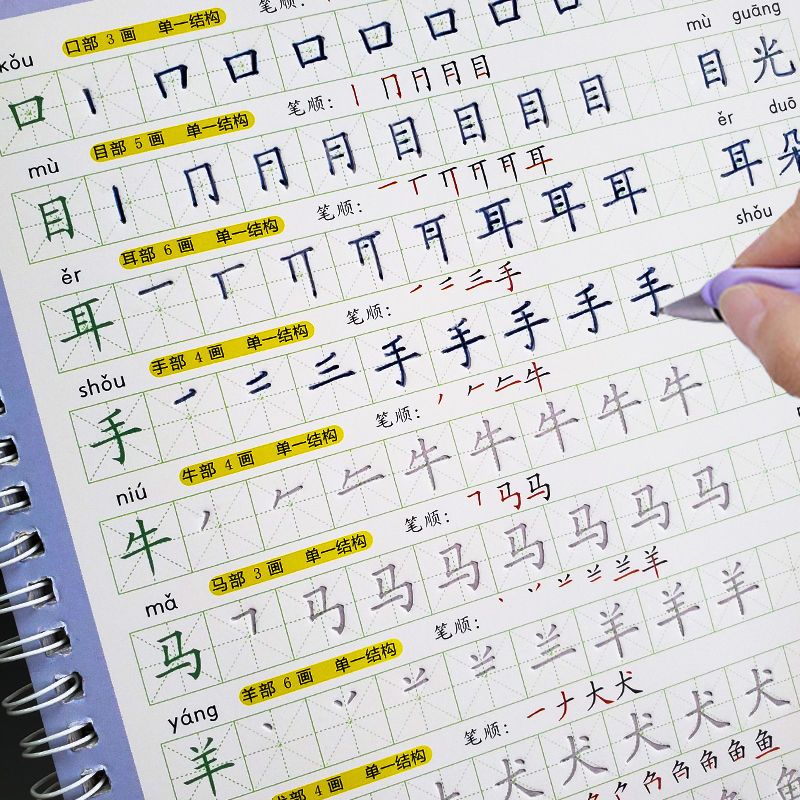 kǒu 口部 3 画 单一结构 笔顺:
口 丨 冂 口 口 口 口 口 口
mù 目部 5 画 单一结构 笔顺: 丨 冂 月 月 目 mù guāng
目 丨 冂 月 月 目 目 目 目 目光
ěr 耳部 6 画 单一结构 笔顺: 一 丅 丌 耳 ěr duō
耳 一 丅 丌 耳 耳 耳 耳朵
shǒu 手部 4 画 单一结构 笔顺: 一 二 三 手 shǒu
手 一 二 三 手 手 手 手 手
niú 牛部 4 画 单一结构 笔顺: 丿 𠂉 牛
牛 丿 𠂉 牛 牛 牛 牛 牛
mǎ 马部 3 画 单一结构 笔顺: ㇕ 马 马
马 ㇕ 马 马 马 马 马 马 马
yáng 羊部 6 画 单一结构 笔顺: 丶 丷 䒑 兰 羊
羊 丶 丷 䒑 兰 羊 羊 羊
犬部 4 画 单一结构 笔顺: 一 ナ 大 犬
犬 犬 犬 犬 犬
鱼 鱼